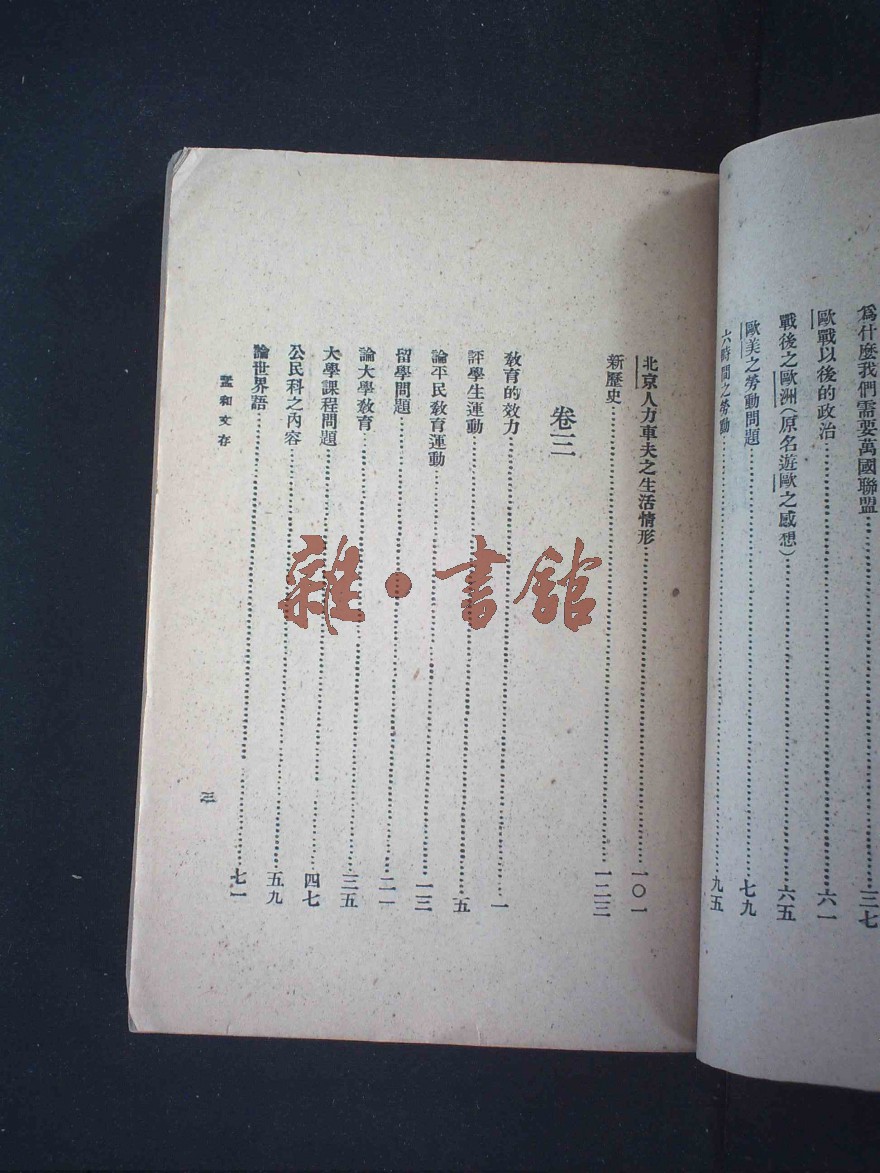 爲什麽我們需要萬國聯盟……三七
歐戰以後的政治……六一
戰後之歐洲(原名遊歐之感想)……六五
歐美之勞動問題……七九
六時間之勞動……九五
北京人力車夫之生活情形……一〇一
新歷史……一二三
卷三
教育的效力……一
評學生運動……五
論平民教育運動……一三
留學問題……二一
論大學教育……三五
大學課程問題……四七
公民科之內容……五九
論世界語……七一
孟和文存
三
雜·書館